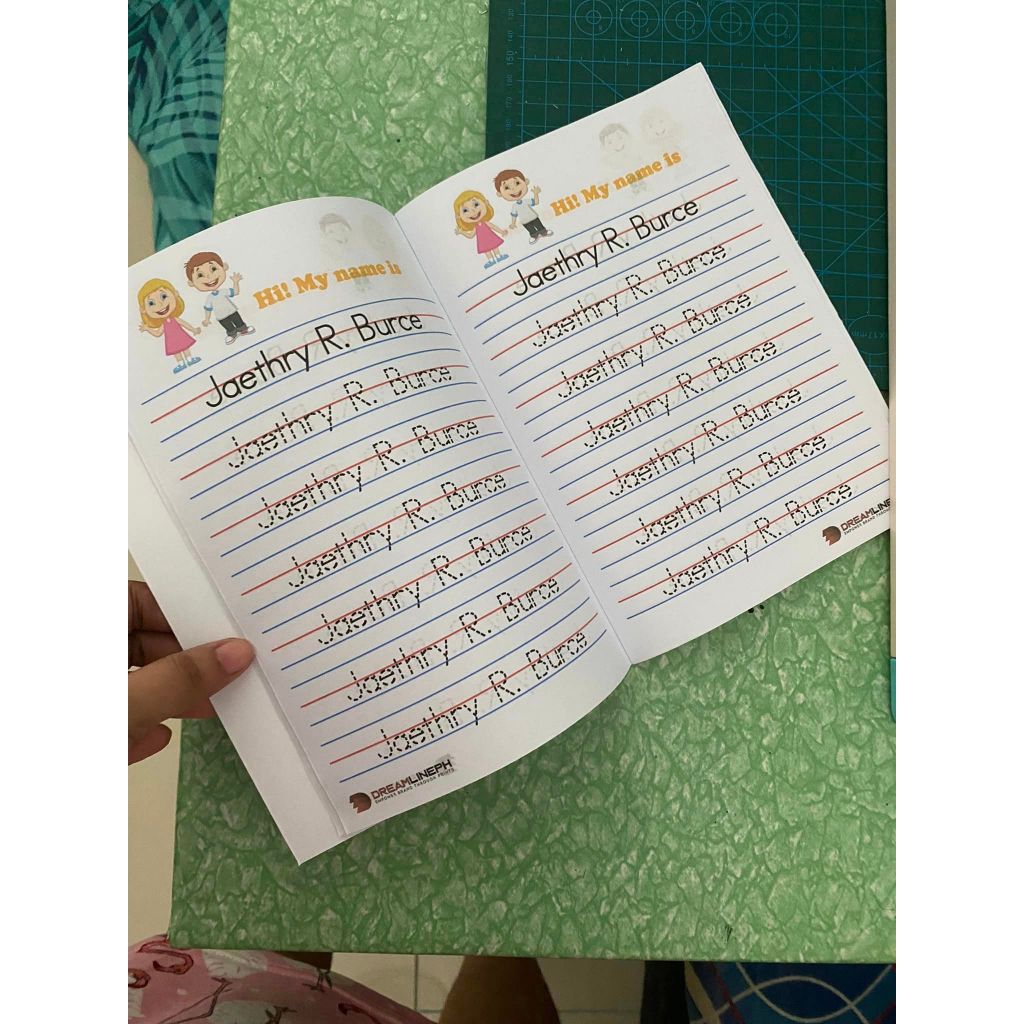 Hi! My name is
Jaethry R. Burce
Jaethry R. Burce
Jaethry R. Burce
Jaethry R. Burce
Jaethry R. Burce
Jaethry R. Burce
Jaethry R. Burce
DREAMLINEPH
EMPOWER BRAND THROUGH PRINTS
Hi! My name is
Jaethry R. Burce
Jaethry R. Burce
Jaethry R. Burce
Jaethry R. Burce
Jaethry R. Burce
Jaethry R. Burce
Jaethry R. Burce
DREAMLINEP
EMPOWER BRAND THROUGH